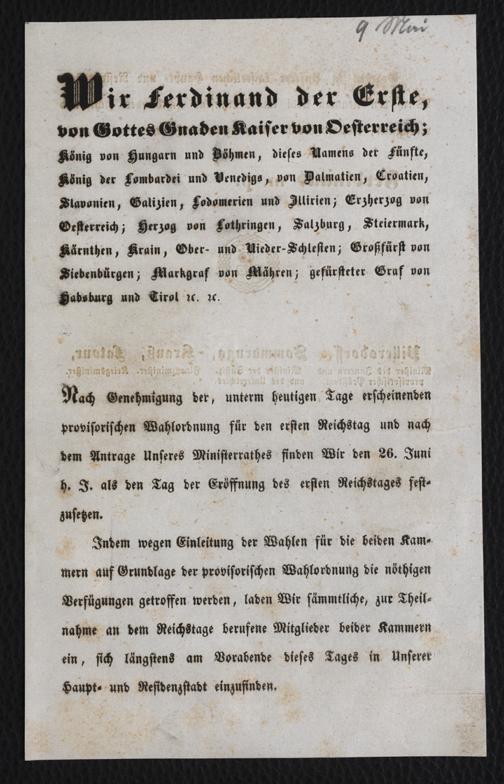 9 Mai
Wir Ferdinand der Erste,
von Gottes Gnaden Kaiser von Oesterreich;
König von Hungarn und Böhmen, dieses Namens der Fünfte,
König der Lombardei und Venedigs, von Dalmatien, Croatien,
Slavonien, Galizien, Lodomerien und Illirien; Erzherzog von
Oesterreich; Herzog von Lothringen, Salzburg, Steiermark,
Kärnthen, Krain, Ober- und Nieder-Schlesien; Großfürst von
Siebenbürgen; Markgraf von Mähren; gefürsteter Graf von
Habsburg und Tirol ꝛc. ꝛc.
Nach Genehmigung der, unterm heutigen Tage erscheinenden
provisorischen Wahlordnung für den ersten Reichstag und nach
dem Antrage Unseres Ministerrathes finden Wir den 26. Juni
h. J. als den Tag der Eröffnung des ersten Reichstages fest-
zusetzen.
Indem wegen Einleitung der Wahlen für die beiden Kam-
mern auf Grundlage der provisorischen Wahlordnung die nöthigen
Verfügungen getroffen werden, laden Wir sämmtliche, zur Theil-
nahme an dem Reichstage berufene Mitglieder beider Kammern
ein, sich längstens am Vorabende dieses Tages in Unserer
Haupt- und Residenzstadt einzufinden.